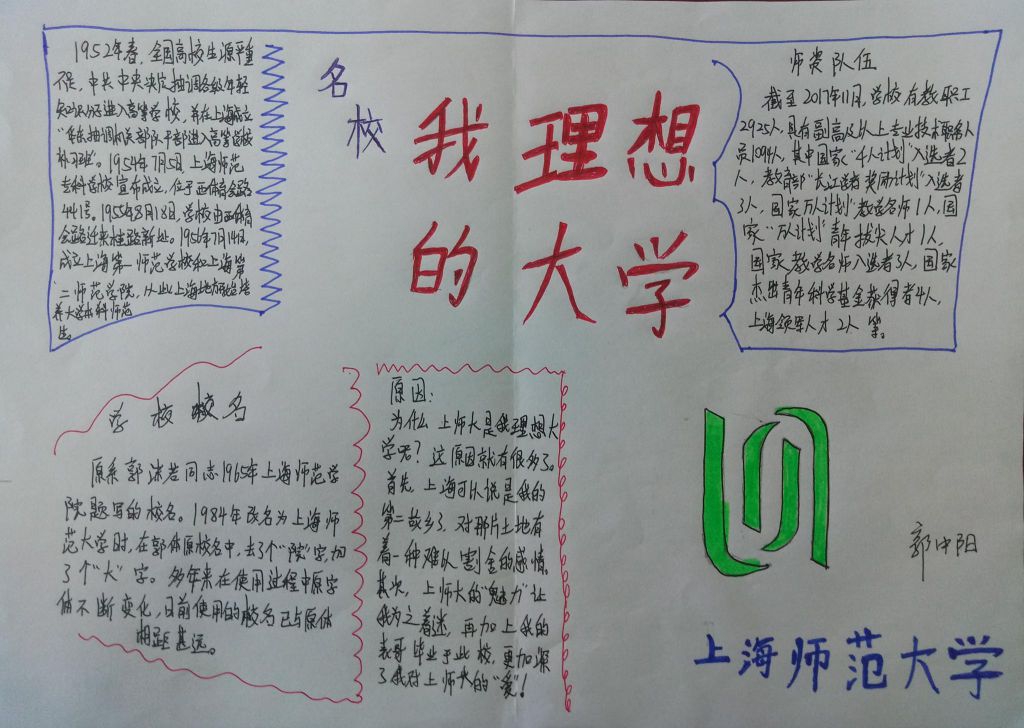 1952年春,全国高校生源严重
不足,中共中央决定抽调各级年轻
知识分子进入高等学校,并在上海成立
“华东抽调机关部队干部进入高等学校
补习班”。1954年7月5日,上海师范
专科学校宣布成立,位于西体育会路
441号。1955年8月18日,学校由西体育
会路迁来桂路新址。1956年7月14日,
成立上海第一师范学校和上海第
二师范学院,从此上海地方开始培
养大学本科师范
生。
名
校
我理想
的大学
师资队伍
截至2017年11月,学校有教职工
2925人,具有副高及以上专业技术职务人
员1094人,其中国家“4人计划”入选者2
人,教育部“长江学者奖励计划”入选者
3人,国家“万人计划”教学名师1人,国
家“万人计划”青年拔尖人才1人,
国家教学名师入选者3人,国家
杰出青年科学基金获得者4人,
上海领军人才2人等。
学校校名
原系郭沫若同志1965年上海师范学
院题写的校名。1984年改名为上海师
范大学时,在郭体原校名中,去了个“院”字,加
了个“大”字。多年来在使用过程中原字
体不断变化,目前使用的校名已与原体
相距甚远。
原因:
为什么上师大是我理想大
学呢?这原因就有很多了。
首先,上海可以说是我的
第二故乡了,对那片土地有
着一种难以割舍的感情。
其次,上师大的“魅力”让
我为之着迷,再加上我的
表哥毕业于此校,更加深
了我对上师大的“爱”!
郭中阳
上海师范大学